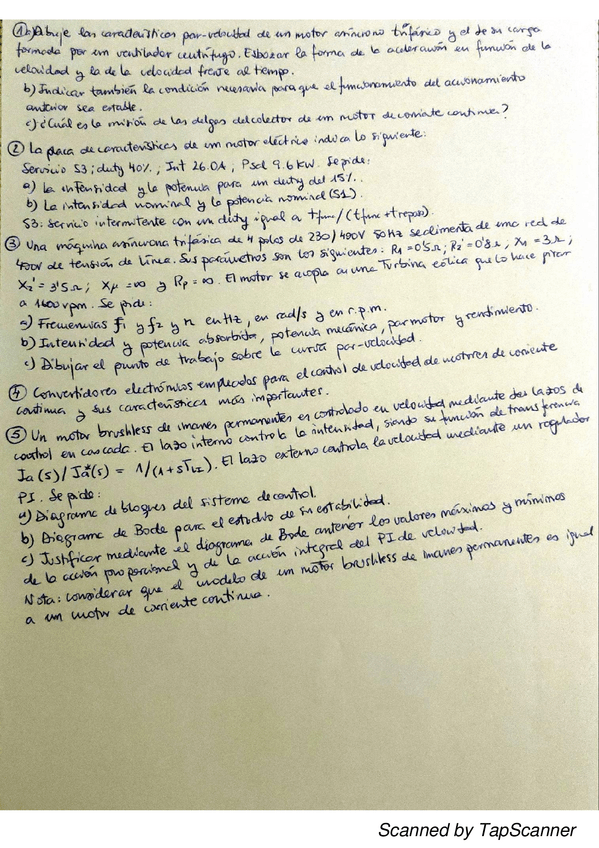 ① a) Dibuje las características par-velocidad de un motor asíncrono trifásico y el de su carga
formada por un ventilador centrífugo. Esbozar la forma de la aceleración en función de la
velocidad y la de la velocidad frente al tiempo.
b) Indicar también la condición necesaria para que el funcionamiento del accionamiento
anterior sea estable.
c) ¿Cuál es la misión de las delgas del colector de un motor de corriente continua?
② La placa de características de un motor eléctrico indica lo siguiente:
Servicio S3; duty 40%, Int 26.0A, Psal 9.6 KW. Se pide:
a) La intensidad y la potencia para un duty del 15%.
b) La intensidad nominal y la potencia nominal (S1).
S3: servicio intermitente con un duty igual a tfunc/(tfunc+trepos).
③ Una máquina asíncrona trifásica de 4 polos de 230/400V 50Hz se alimenta de una red de
400V de tensión de línea. Sus parámetros son los siguientes: R1 = 0'5Ω; R2' = 0'8Ω; X1 = 3Ω;
X2' = 3'5Ω; Xμ = ∞ y Rp = ∞. El motor se acopla a una Turbina eólica que lo hace girar
a 1600 rpm. Se pide:
a) Frecuencias f1 y f2 y n en Hz, en rad/s y en r.p.m.
b) Intensidad y potencia absorbida, potencia mecánica, par motor y rendimiento.
c) Dibujar el punto de trabajo sobre la curva par-velocidad.
④ Convertidores electrónicos empleados para el control de velocidad de motores de corriente
continua y sus características más importantes.
⑤ Un motor brushless de imanes permanentes es controlado en velocidad mediante dos lazos de
control en cascada. El lazo interno controla la intensidad, siendo su función de transferencia
Ia(s)/Ia*(s) = 1/(1+sTLI). El lazo externo controla la velocidad mediante un regulador
PI. Se pide:
a) Diagrama de bloques del sistema de control.
b) Diagrama de Bode para el estudio de su estabilidad.
c) Justificar mediante el diagrama de Bode anterior los valores máximos y mínimos
de la acción proporcional y de la acción integral del PI de velocidad.
Nota: considerar que el modelo de un motor brushless de imanes permanentes es igual
a un motor de corriente continua.
Scanned by TapScanner